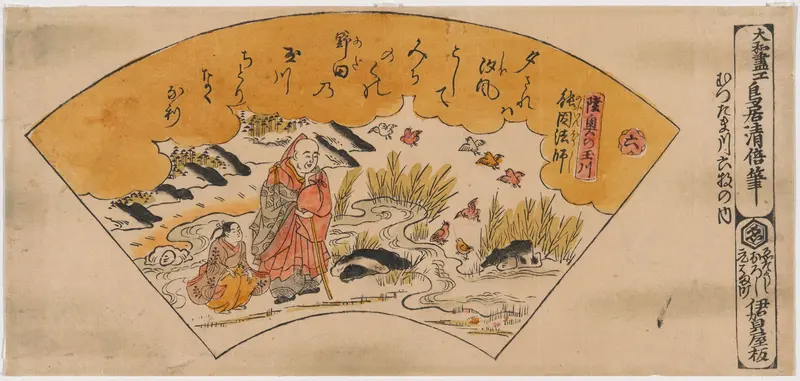 大和畫工鳥居清倍筆
むつたま川六枚の内
おろし
伊賀屋板
六
陸奥の玉川
能因法師
夕されハ
汐風
こして
みち
のくの
野田乃
玉川
ちとり
なく
なり